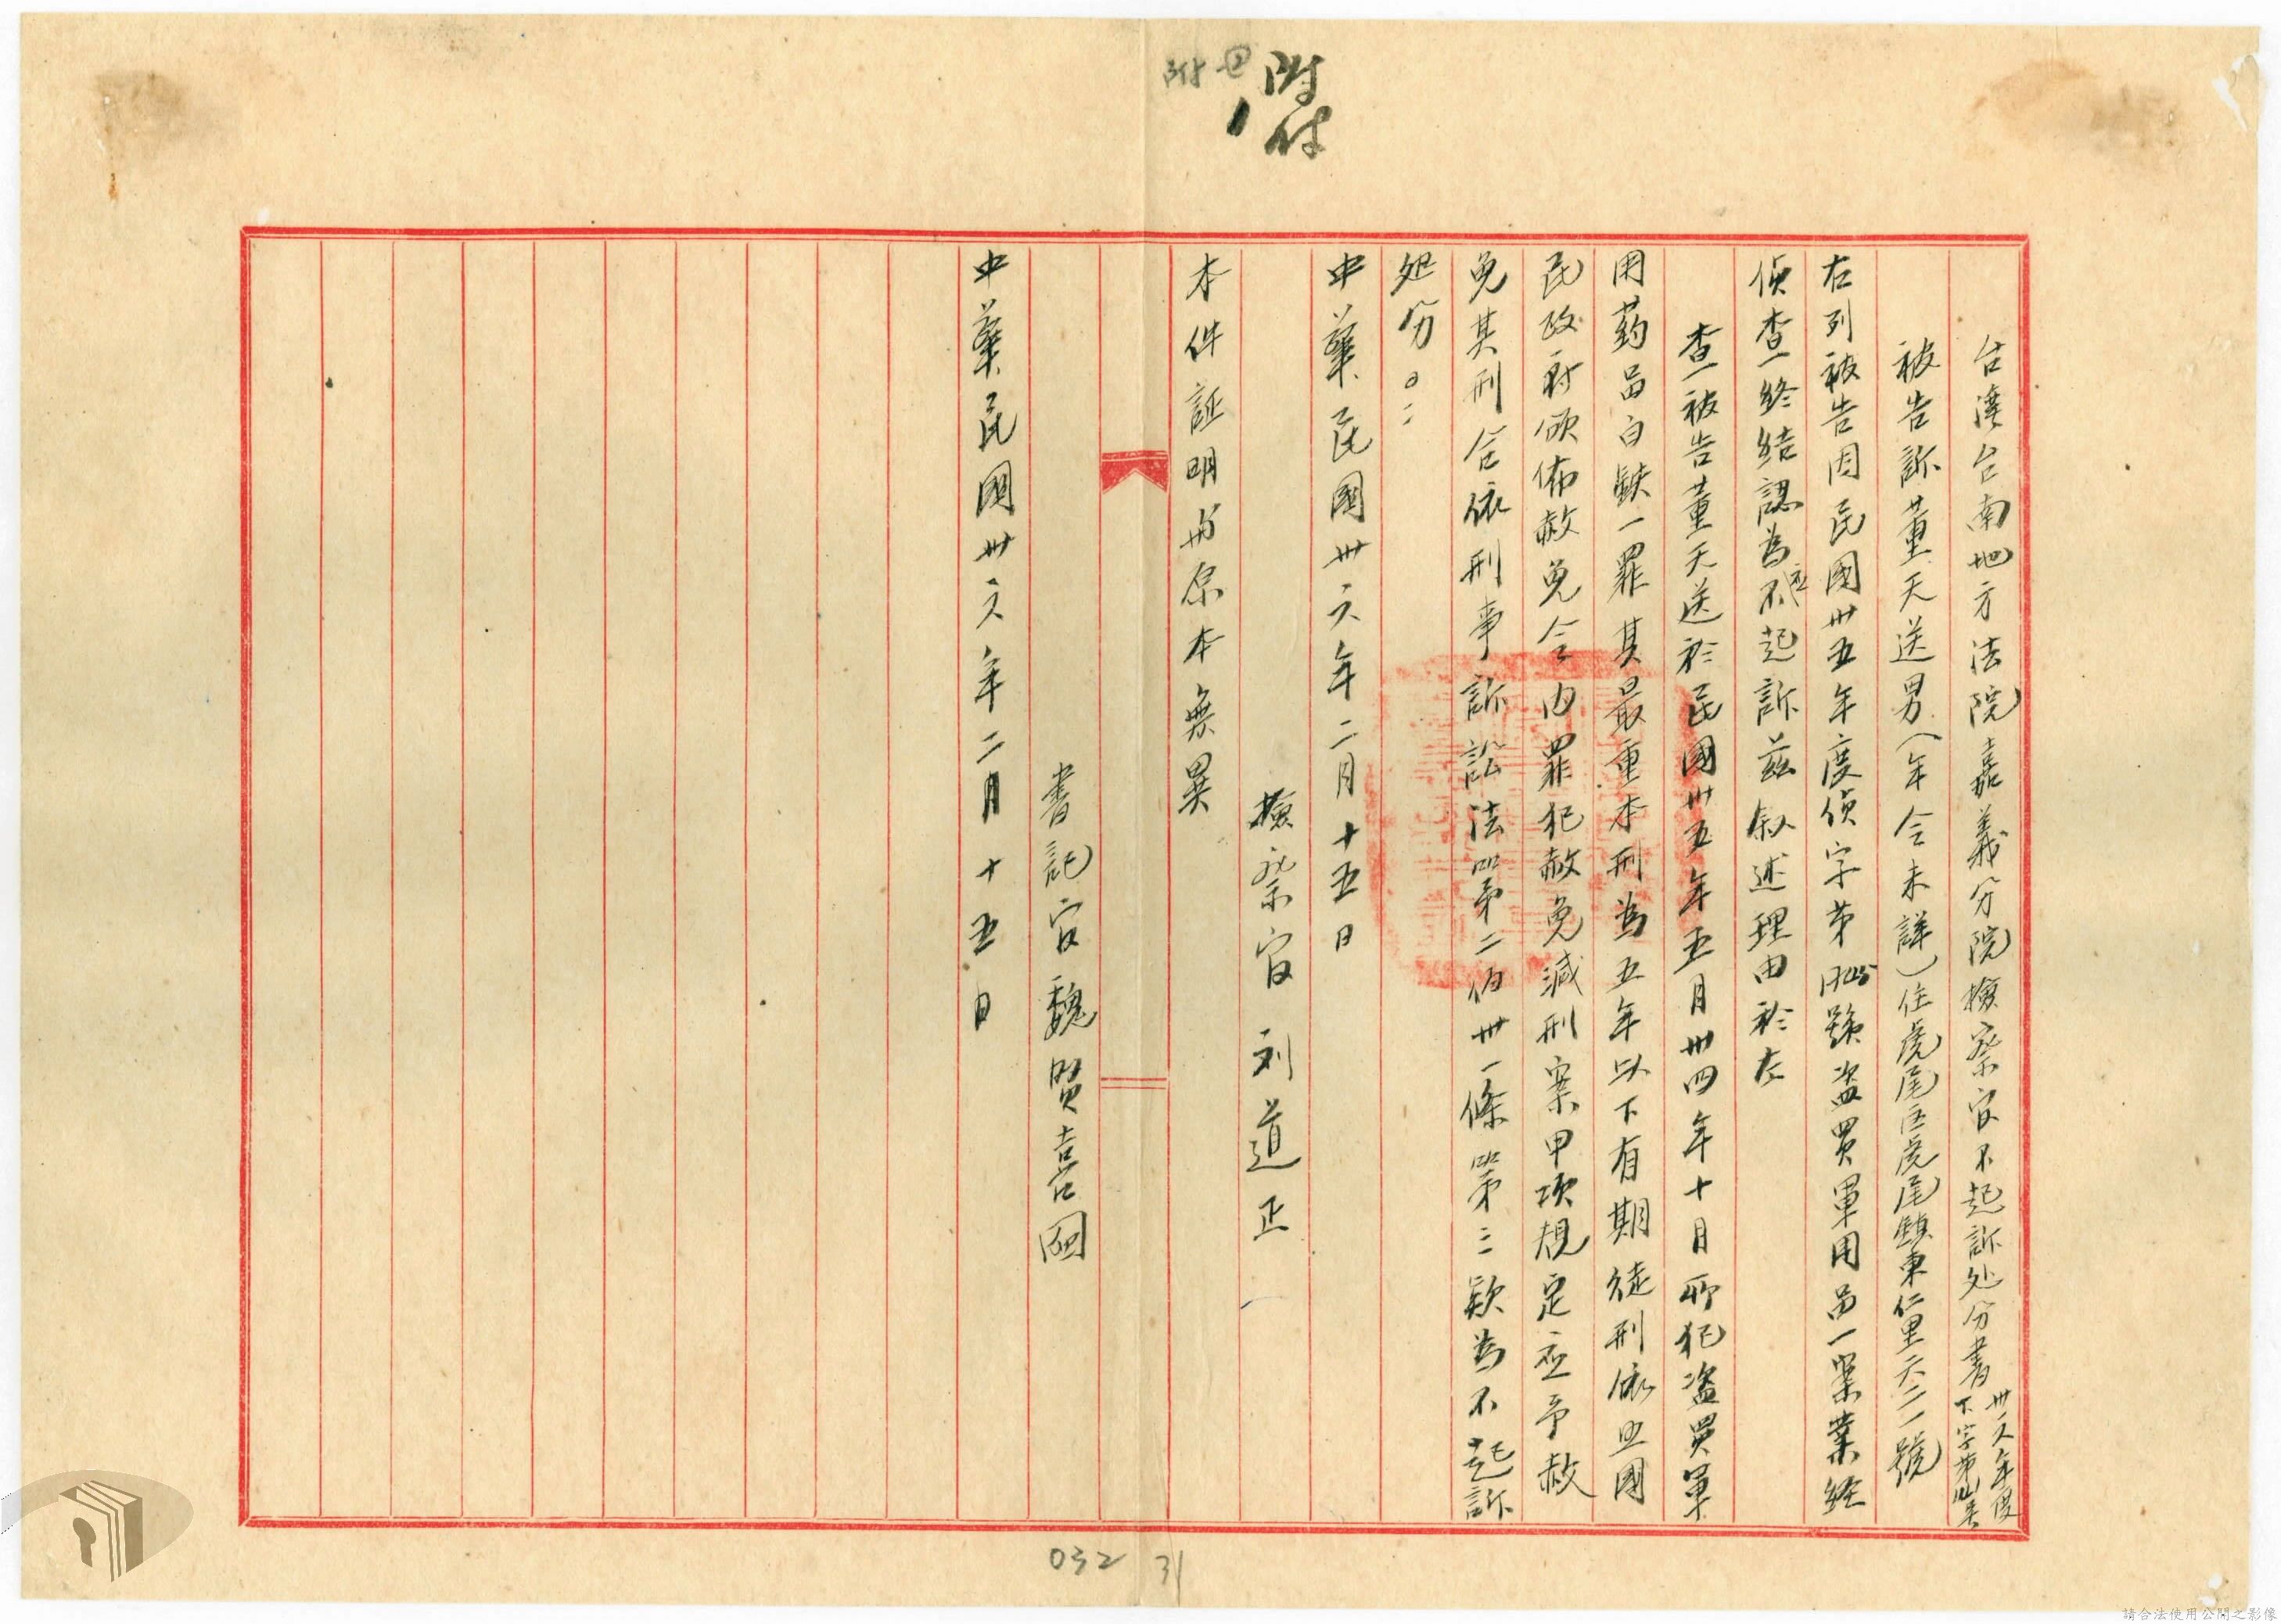 附④
附件
1
台灣台南地方法院嘉義分院檢察官不起訴处分書
卅六年度
不字第 号
被告訴董天送男(年令未詳)住虎尾区虎尾鎮東仁里六二一號
右列被告因民國卅五年度偵字第 號盗買軍用品一案業経
偵查終結認為應不起訴茲叙述理由於左
查被告董天送於民國卅五年五月卅四年十月所犯盗買軍
用葯品白鉄一罪其最重本刑為五年以下有期徒刑依照國
民政府頒佈赦免令内罪犯赦免減刑案甲項規定应予赦
免其刑合依刑事訴訟法第二佰卅一條第三款為不起訴
処分。
中華民國卅六年二月十五日
檢察官刘道正
本件証明與原本無異
書記官魏賢喜
中華民國卅六年二月十五日
032 31
請合法使用公開之影像